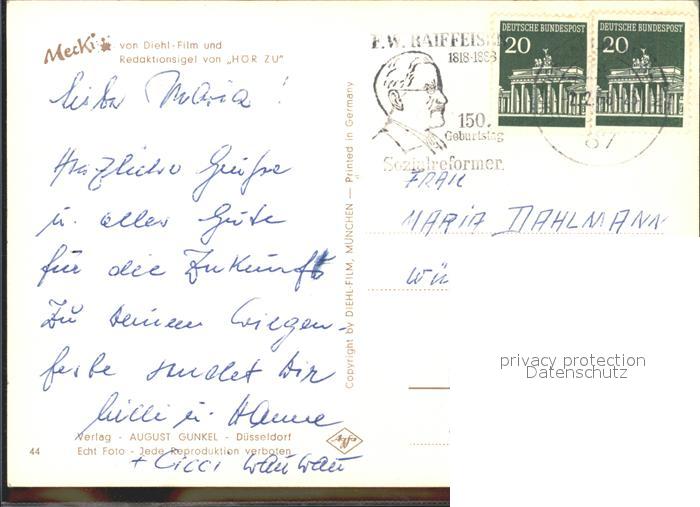 Mecki von Diehl-Film und
Redaktionsigel von „HÖR ZU"
Liebe Maria!
Herzliche Grüße
u. alles Gute
für die Zukunft
Zu Deinem Wiegen-
feste sendet Dir
Willi u. Hanne
+ Cicci Wauwau
Verlag - AUGUST GUNKEL - Düsseldorf
44 Echt Foto - Jede Reproduktion verboten
Agfa
Copyright by DIEHL-FILM, MÜNCHEN — Printed in Germany
F. W. RAIFFEISEN
1818-1888
150.
Geburtstag
Sozialreformer
DEUTSCHE BUNDESPOST
20
DEUTSCHE BUNDESPOST
20
87
FRAU
MARIA DAHLMANN
WÜ
privacy protection
Datenschutz